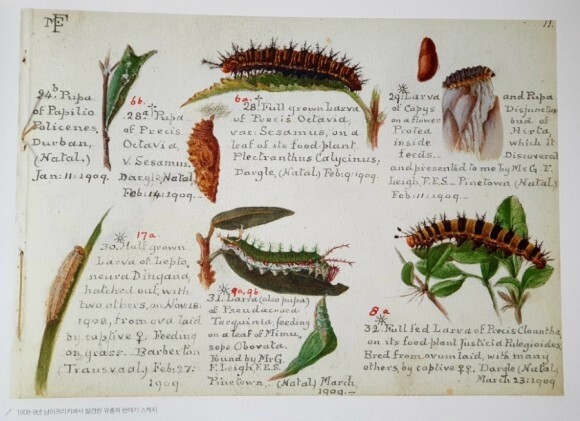 MEF
13.
24.b Pupa
of Papilio
Policenes,
Durban,
(Natal.)
Jan: 11: 1909.
6b.
28.a Pupa
of Precis
Octavia,
V. Sesamus.
Dargle, Natal
Feb: 14: 1909.
6a.
28. Full grown Larva
of Precis Octavia,
var: Sesamus, on a
leaf of its food plant,
Plectranthus Calycinus;
Dargle, (Natal) Feb: 9: 1909.
29. Larva and Pupa
of Capys Disjunctus
on a flower bud of
Protea Hirta,
inside which it
feeds. Discovered
and presented to me by Mr G. F.
Leigh, F.E.S. Pinetown (Natal)
Feb: 11: 1909.
17a
30. Half grown
Larva of Lepto,
neura Dingana,
hatched out, with
two others, on Nov: 18:
1908, from ova laid
by captive ♀. Feeding
on grass. Barberton
(Transvaal) Feb: 27:
1909.
9a, 9b
31. Larva (also pupa)
of Pseudacraea
Tarquinia, feeding
on a leaf of Mimu,
sops Obovata.
Found by Mr G.
F. Leigh, F.E.S.
Pinetown, (Natal) March
1909.
8.a
32. Full fed Larva of Precis Cloantha
on its food plant Justicia Pulegioides.
Bred from ovum laid, with many
others, by captive ♀♀. Dargle (Natal)
March 23: 1909
1908-9년 남아프리카에서 발견한 유충과 번데기 스케치